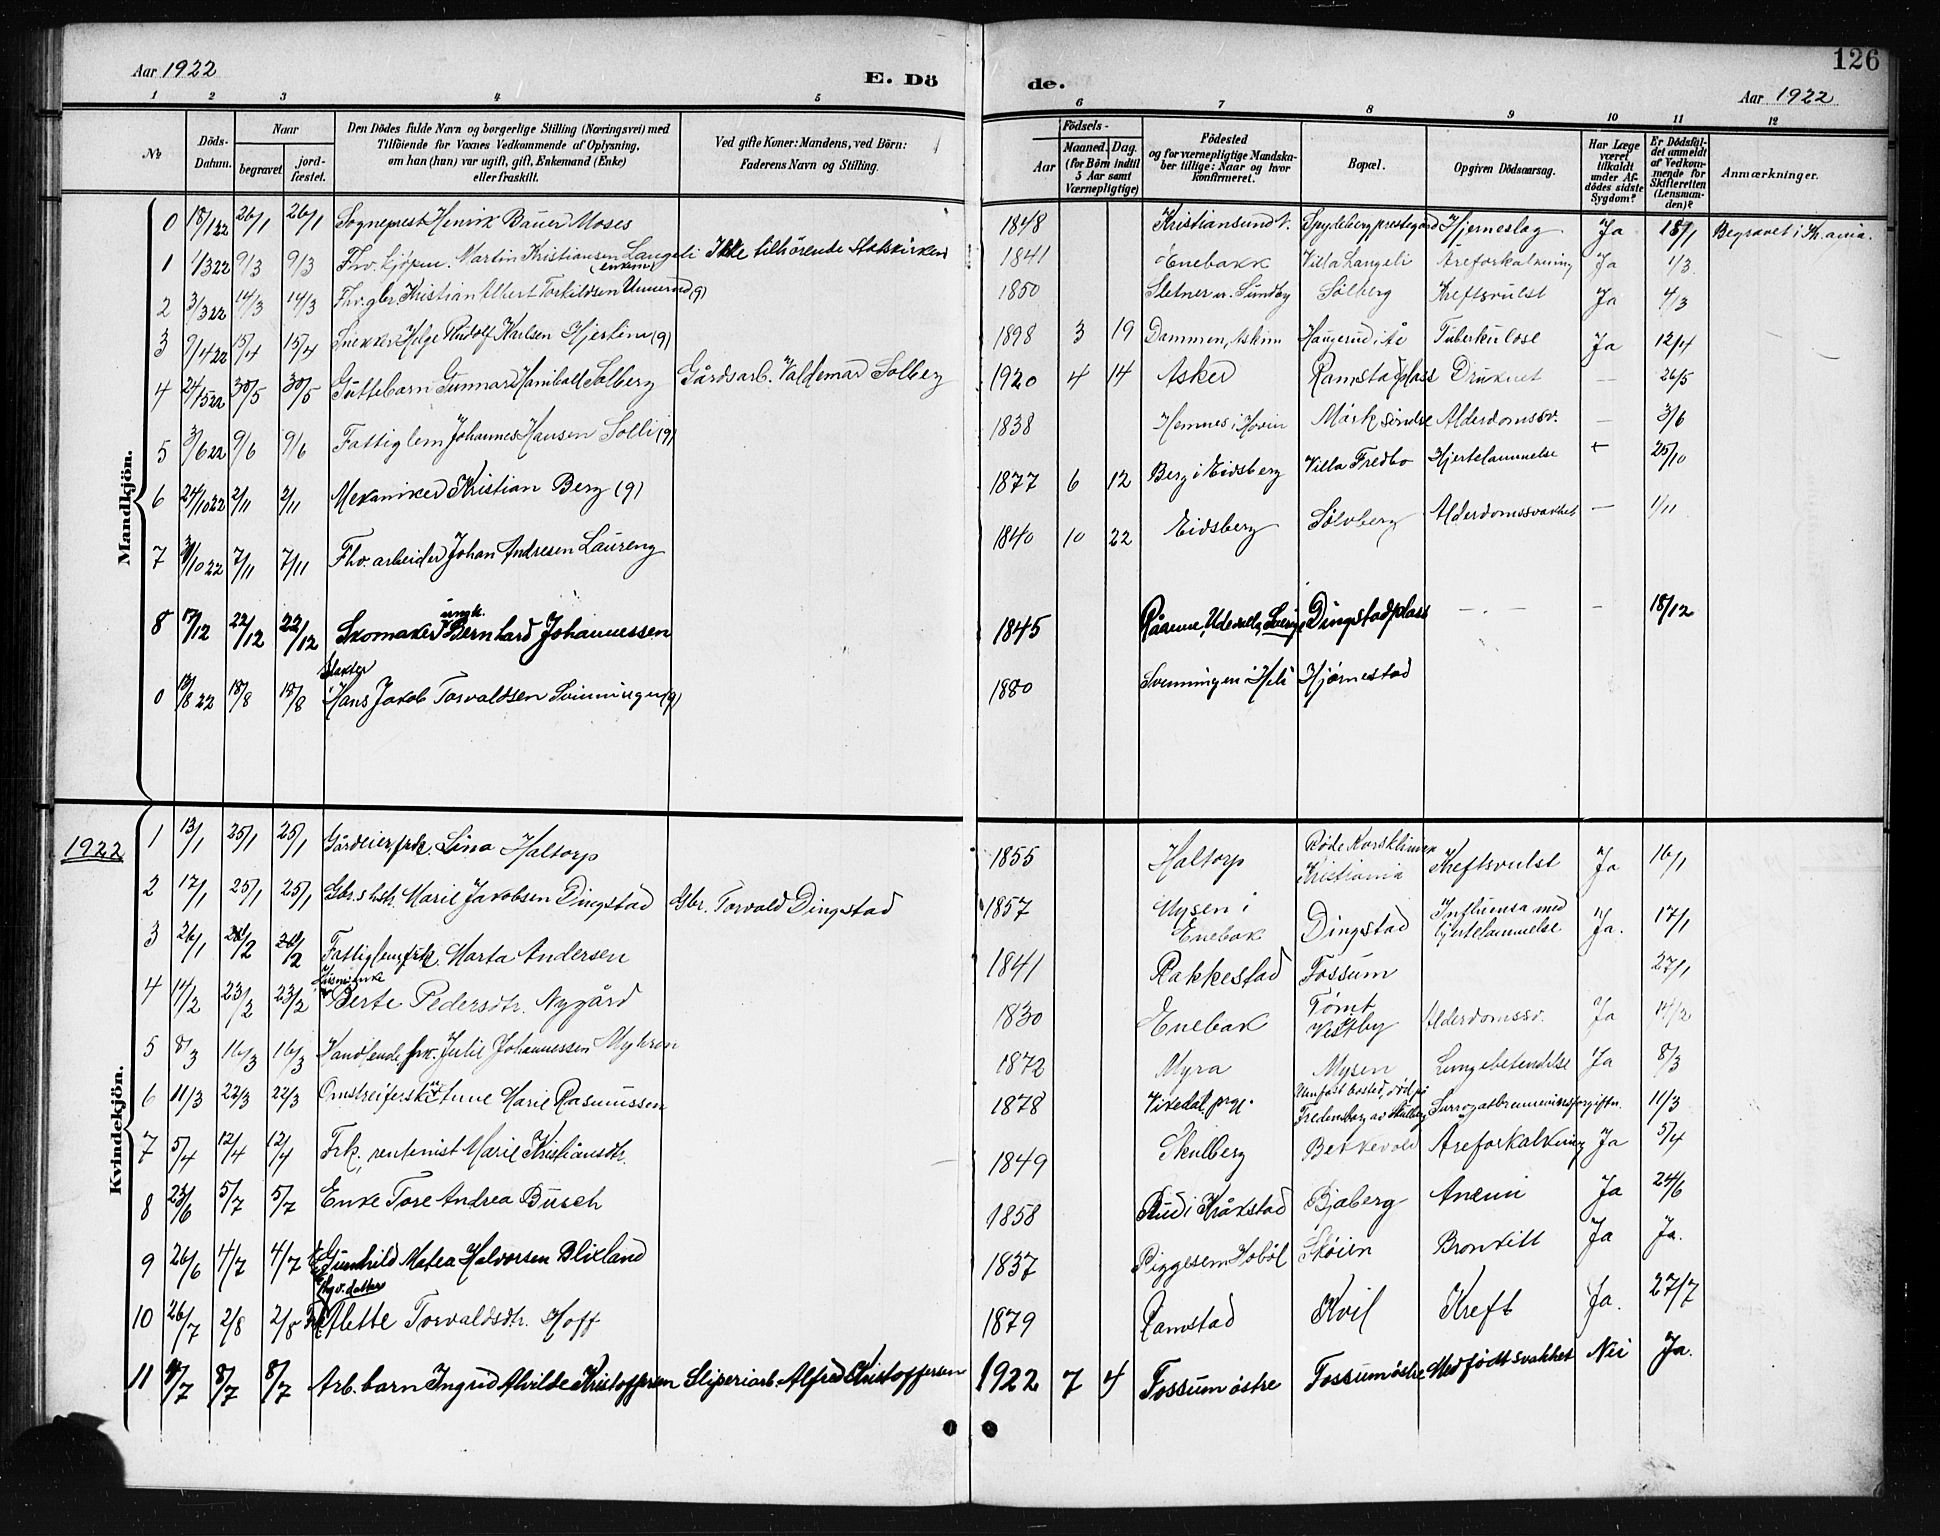 126
Aar 1922
E. Dö
de.
Aar 1922
1 2 3 4 5 6 7 8 9 10 11 12
№
Döds-Datum.
Naar
begravet
jord-fæstet.
Den Dödes fulde Navn og borgerlige Stilling (Næringsvei) med Tilföiende for Voxnes Vedkommende af Oplysning, om han (hun) var ugift, gift, Enkemand (Enke) eller fraskilt.
Ved gifte Koner: Mandens, ved Börn: Faderens Navn og Stilling.
Födsels-
Aar
Maaned. Dag.
(for Börn indtil 5 Aar samt Værnepligtige)
Födested og for værnepligtige Mandskaber tillige: Naar og hvor konfirmeret.
Bopæl.
Opgiven Dödsaarsag.
Har Læge været tilkaldt under Afdödes sidste Sygdom?
Er Dödsfaldet anmeldt af Vedkommende for Skifteretten (Lensmanden)?
Anmærkninger.
Mandkjön.
0 18/1 22 26/1 26/1 Sogneprest Henrik Bauer Moses 1848 Kristiansund N. Spydeberg prestegård Hjerneslag Ja 18/1 Begravet i Kr.ania.
1 1/3 22 9/3 9/3 Fhv. Martin Kristiansen Langeli (enkem) Ikke tilhörende Statskirken 1841 Enebakk Villa Langeli Åreforkalkning Ja 1/3
2 3/3 22 14/3 14/3 Fhv. gbr. Kristian Albert Torkildsen Unnerud (g) 1850 Sletner Sundby Solberg Kreftsvulst Ja 4/3
3 9/4 22 15/4 15/4 Snekker Helge Rudolf Karlsen (g) 1898 3 19 Dammen, Askim Haugerud i Ås Tuberkulose Ja 12/4
4 24/5 22 30/5 30/5 Guttebarn Gunnar Hanibal Solberg Gårdsarb. Valdemar Solberg 1920 4 14 Asker Ramstadplass Druknet — 26/5
5 3/6 22 9/6 9/6 Fattiglem Johannes Hansen Solli (g) 1838 Hemnes i Hovin Mork söndre Alderdomssv. — 3/6
6 24/10 22 2/11 2/11 Mekaniker Kristian Berg (g) 1877 6 12 Berg i Eidsberg Villa Fredbo Hjertelammelse 25/10
7 22 7/11 7/11 Fhv. arbeider Johan Andresen Laureng 1840 10 22 Eidsberg Solberg Alderdomssvakhet — 1/11
8 17/12 22/12 22/12 Skomaker ungk. Bernhard Johannessen 1845 Udevalla, Sverige Dingstadplass — . — — 18/12
0 13/8 22 18/8 18/8 Slakter Hans Jakob Torvaldsen Svinningen (g) 1880 Svenningen i Heli Hjørnestad
1922
Kvindekjön.
1 13/1 25/1 25/1 Gårdeier, frk. Lina Haltorp 1855 Haltorp Røde Korsklinikk Kristiania Kreftsvulst Ja 16/1
2 17/1 25/1 25/1 Gbr.s hstr. Marie Jakobsen Dingstad Gbr. Torvald Dingstad 1857 Mysen i Enebak Dingstad Influensa med hjertelammelse Ja. 17/1
3 26/1 Fattiglem, frk. Marta Andersen 1841 Rakkestad Fossum 27/1
4 14/2 23/2 23/2 Husmenke Berte Pedersdtr. Nygård 1830 Enebak Tømt Vestby Alderdomssv. Ja 14/2
5 8/3 16/3 16/3 Handlende frk. Julie Johannessen Myhren 1872 Myra Mysen Lungebetendelse Ja 8/3
6 11/3 22/3 22/3 Omstreiferske Anne Marie Rasmussen 1878 Vikedal prgj. Uten fast bosted, død på Fredensborg av Skulberg Surrogatbrennevinsforgiftn. 11/3
7 5/4 12/4 12/4 Frk. rentenist Marie Kristiansdtr. 1849 Skulberg Bekkevold Åreforkalkning Ja 5/4
8 23/6 5/7 5/7 Enke Tore Andrea Busch 1858 Rud i Kråkstad Bjaberg Anemi Ja 24/6
9 26/6 4/7 4/7 E. Gunhild Matea Halvorsen Blixland 1837 Hobøl Skøien Bronkitt Ja Ja.
10 26/7 2/8 2/8 Frk. Alette Torvaldsdtr. Hoff 1879 Ramstad Kvil Kreft Ja. 27/7
11 4/7 8/7 8/7 Arb. barn Ingrid Alvilde Kristoffersen Sliperiarb. Alfred Kristoffersen 1922 7 4 Fossum östre Fossum östre Medfödt svakhet Nei Ja.